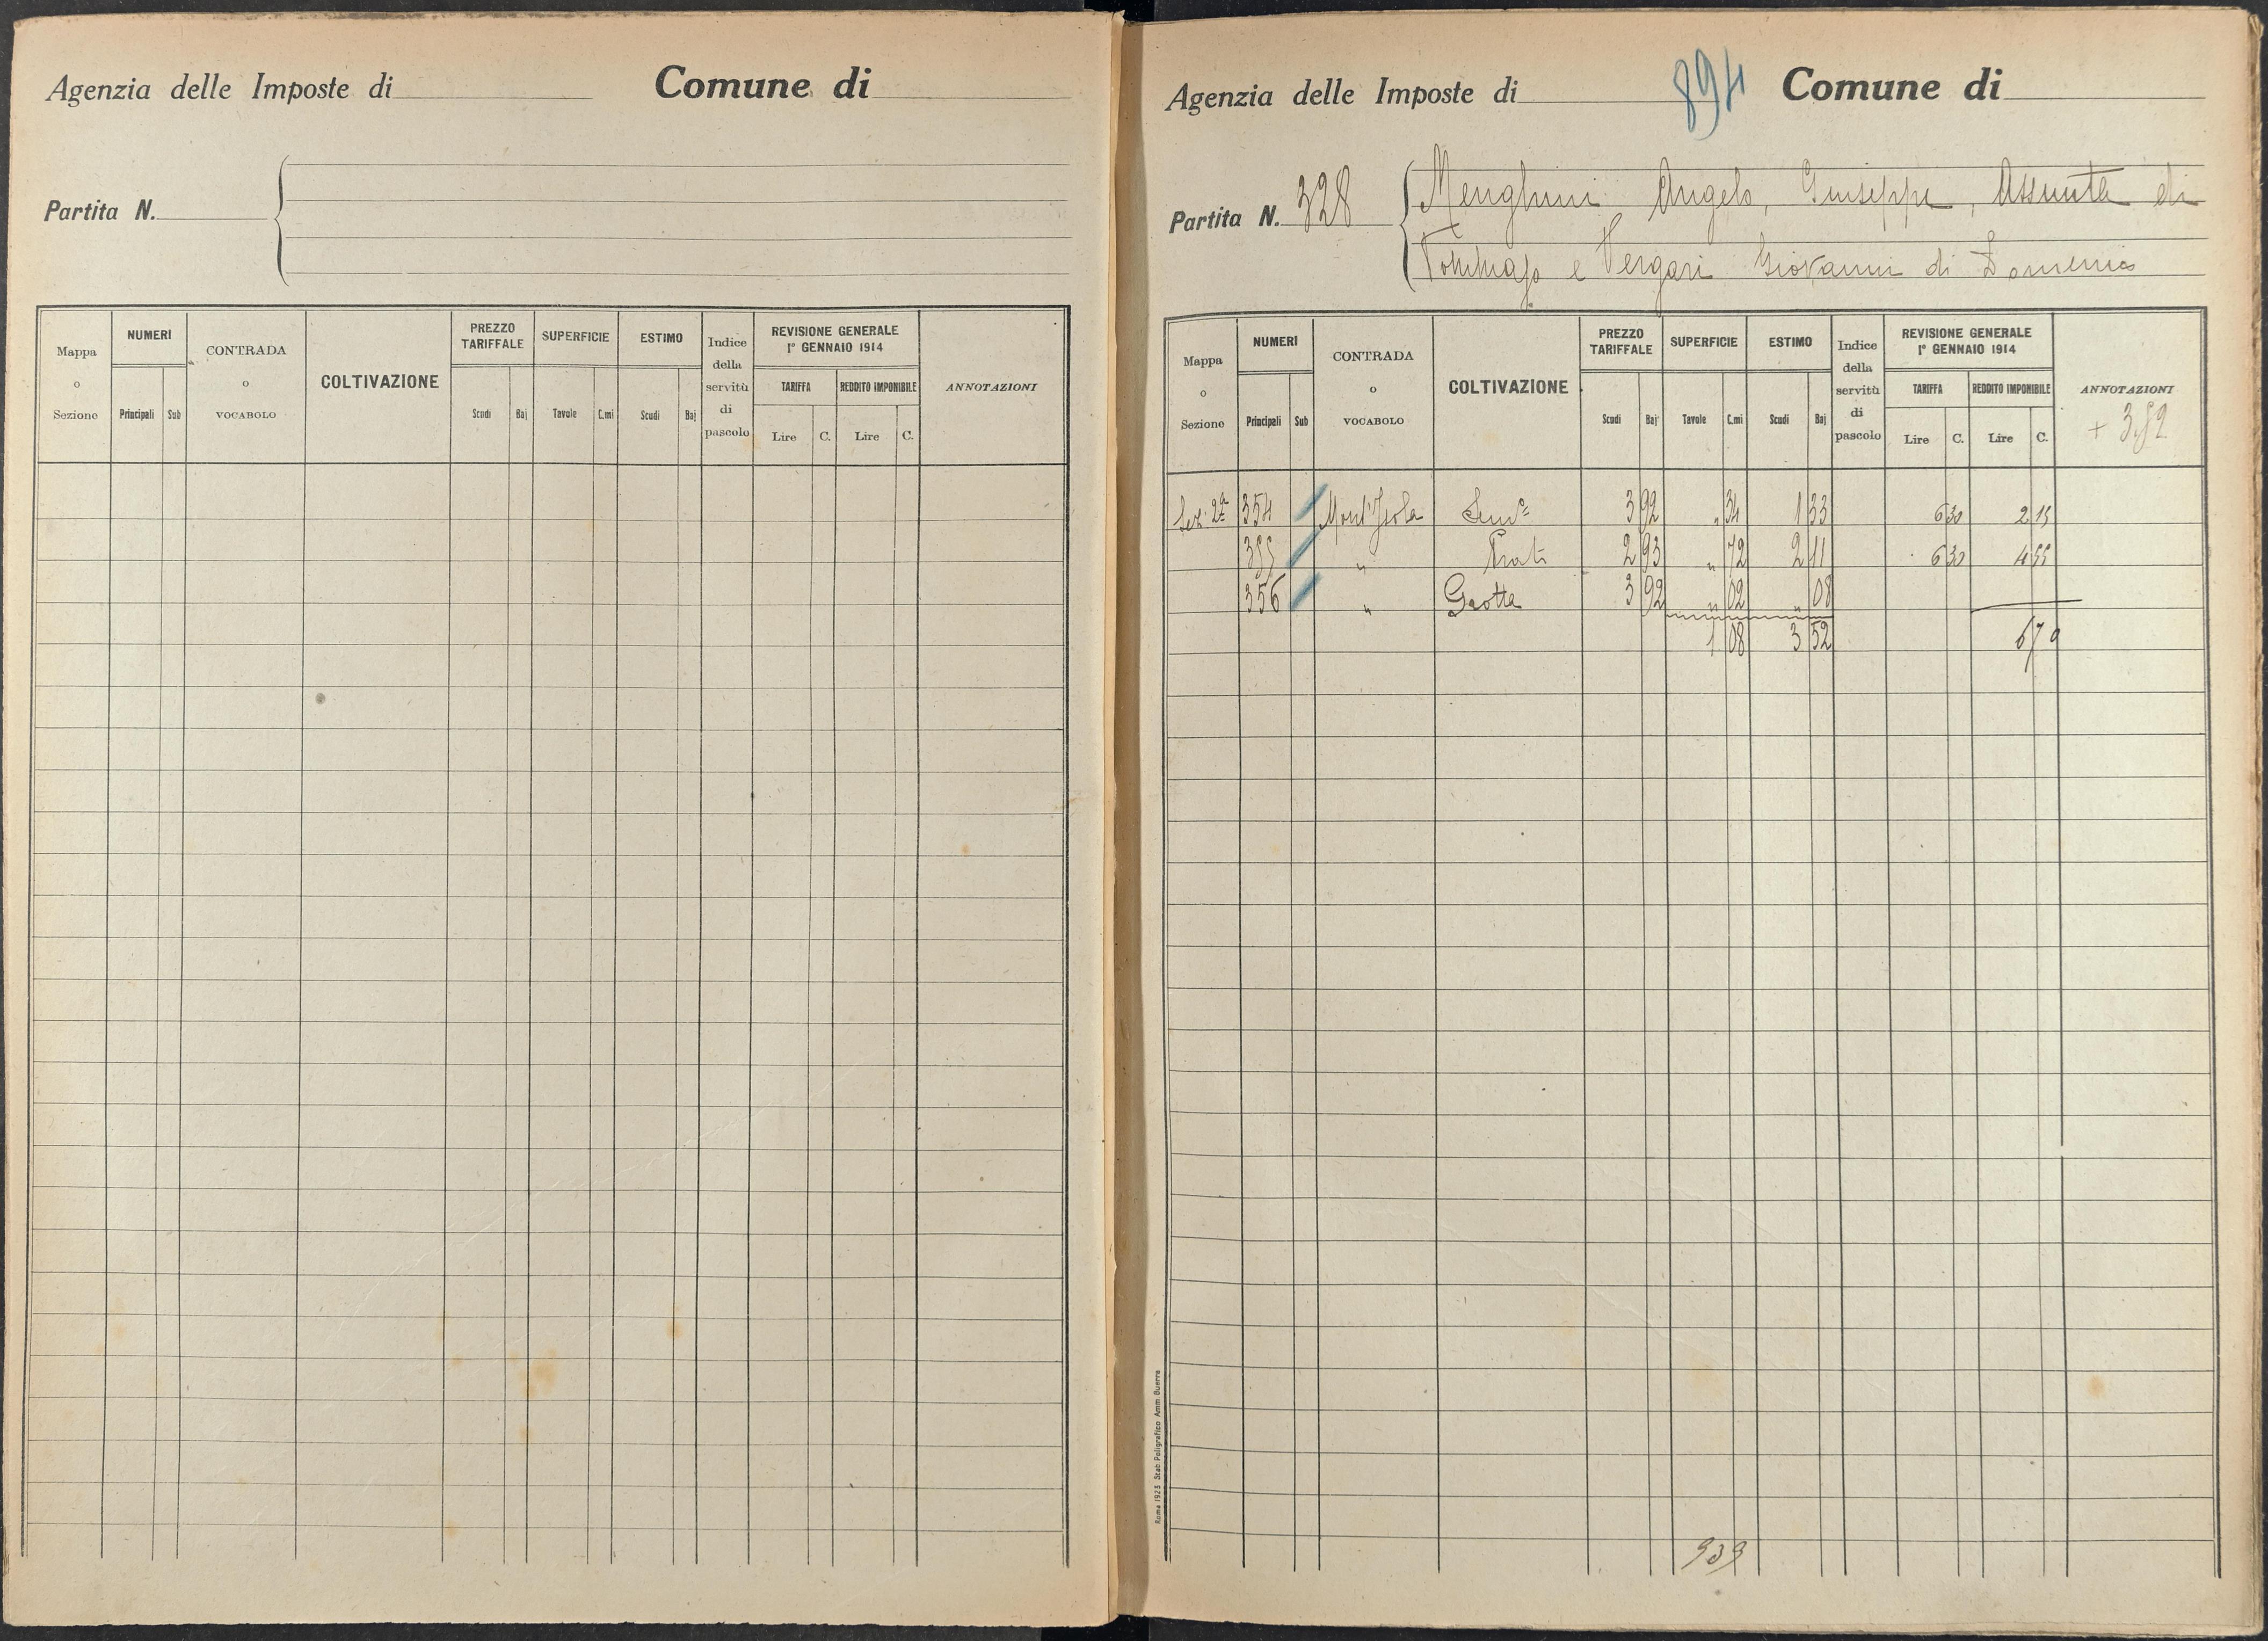 Agenzia delle Imposte di Comune di
Partita N.
Mappa o Sezione NUMERI Principali Sub CONTRADA o VOCABOLO COLTIVAZIONE PREZZO TARIFFALE Scudi Baj SUPERFICIE Tavole C.mi ESTIMO Scudi Baj Indice della servitù di pascolo REVISIONE GENERALE 1º GENNAIO 1914 TARIFFA Lire C. REDDITO IMPONIBILE Lire C. ANNOTAZIONI
Agenzia delle Imposte di 894 Comune di
Partita N. 328
Menghini Angelo, Giuseppe, Assunta di
Tommaso e Vergari Giovanni di Domenico
Mappa o Sezione NUMERI Principali Sub CONTRADA o VOCABOLO COLTIVAZIONE PREZZO TARIFFALE Scudi Baj SUPERFICIE Tavole C.mi ESTIMO Scudi Baj Indice della servitù di pascolo REVISIONE GENERALE 1º GENNAIO 1914 TARIFFA Lire C. REDDITO IMPONIBILE Lire C. ANNOTAZIONI
+ 3.52
Sez. 2ª 354 Mont'Isola Semº 3 92 " 34 1 33 6 30 2 15
355 " Prato 2 93 " 72 2 11 6 30 4 55
356 " Grotta 3 92 " 02 " 08
1 08 3 52 6 70
939
Roma 1923 Stab. Poligrafico Amm. Guerra